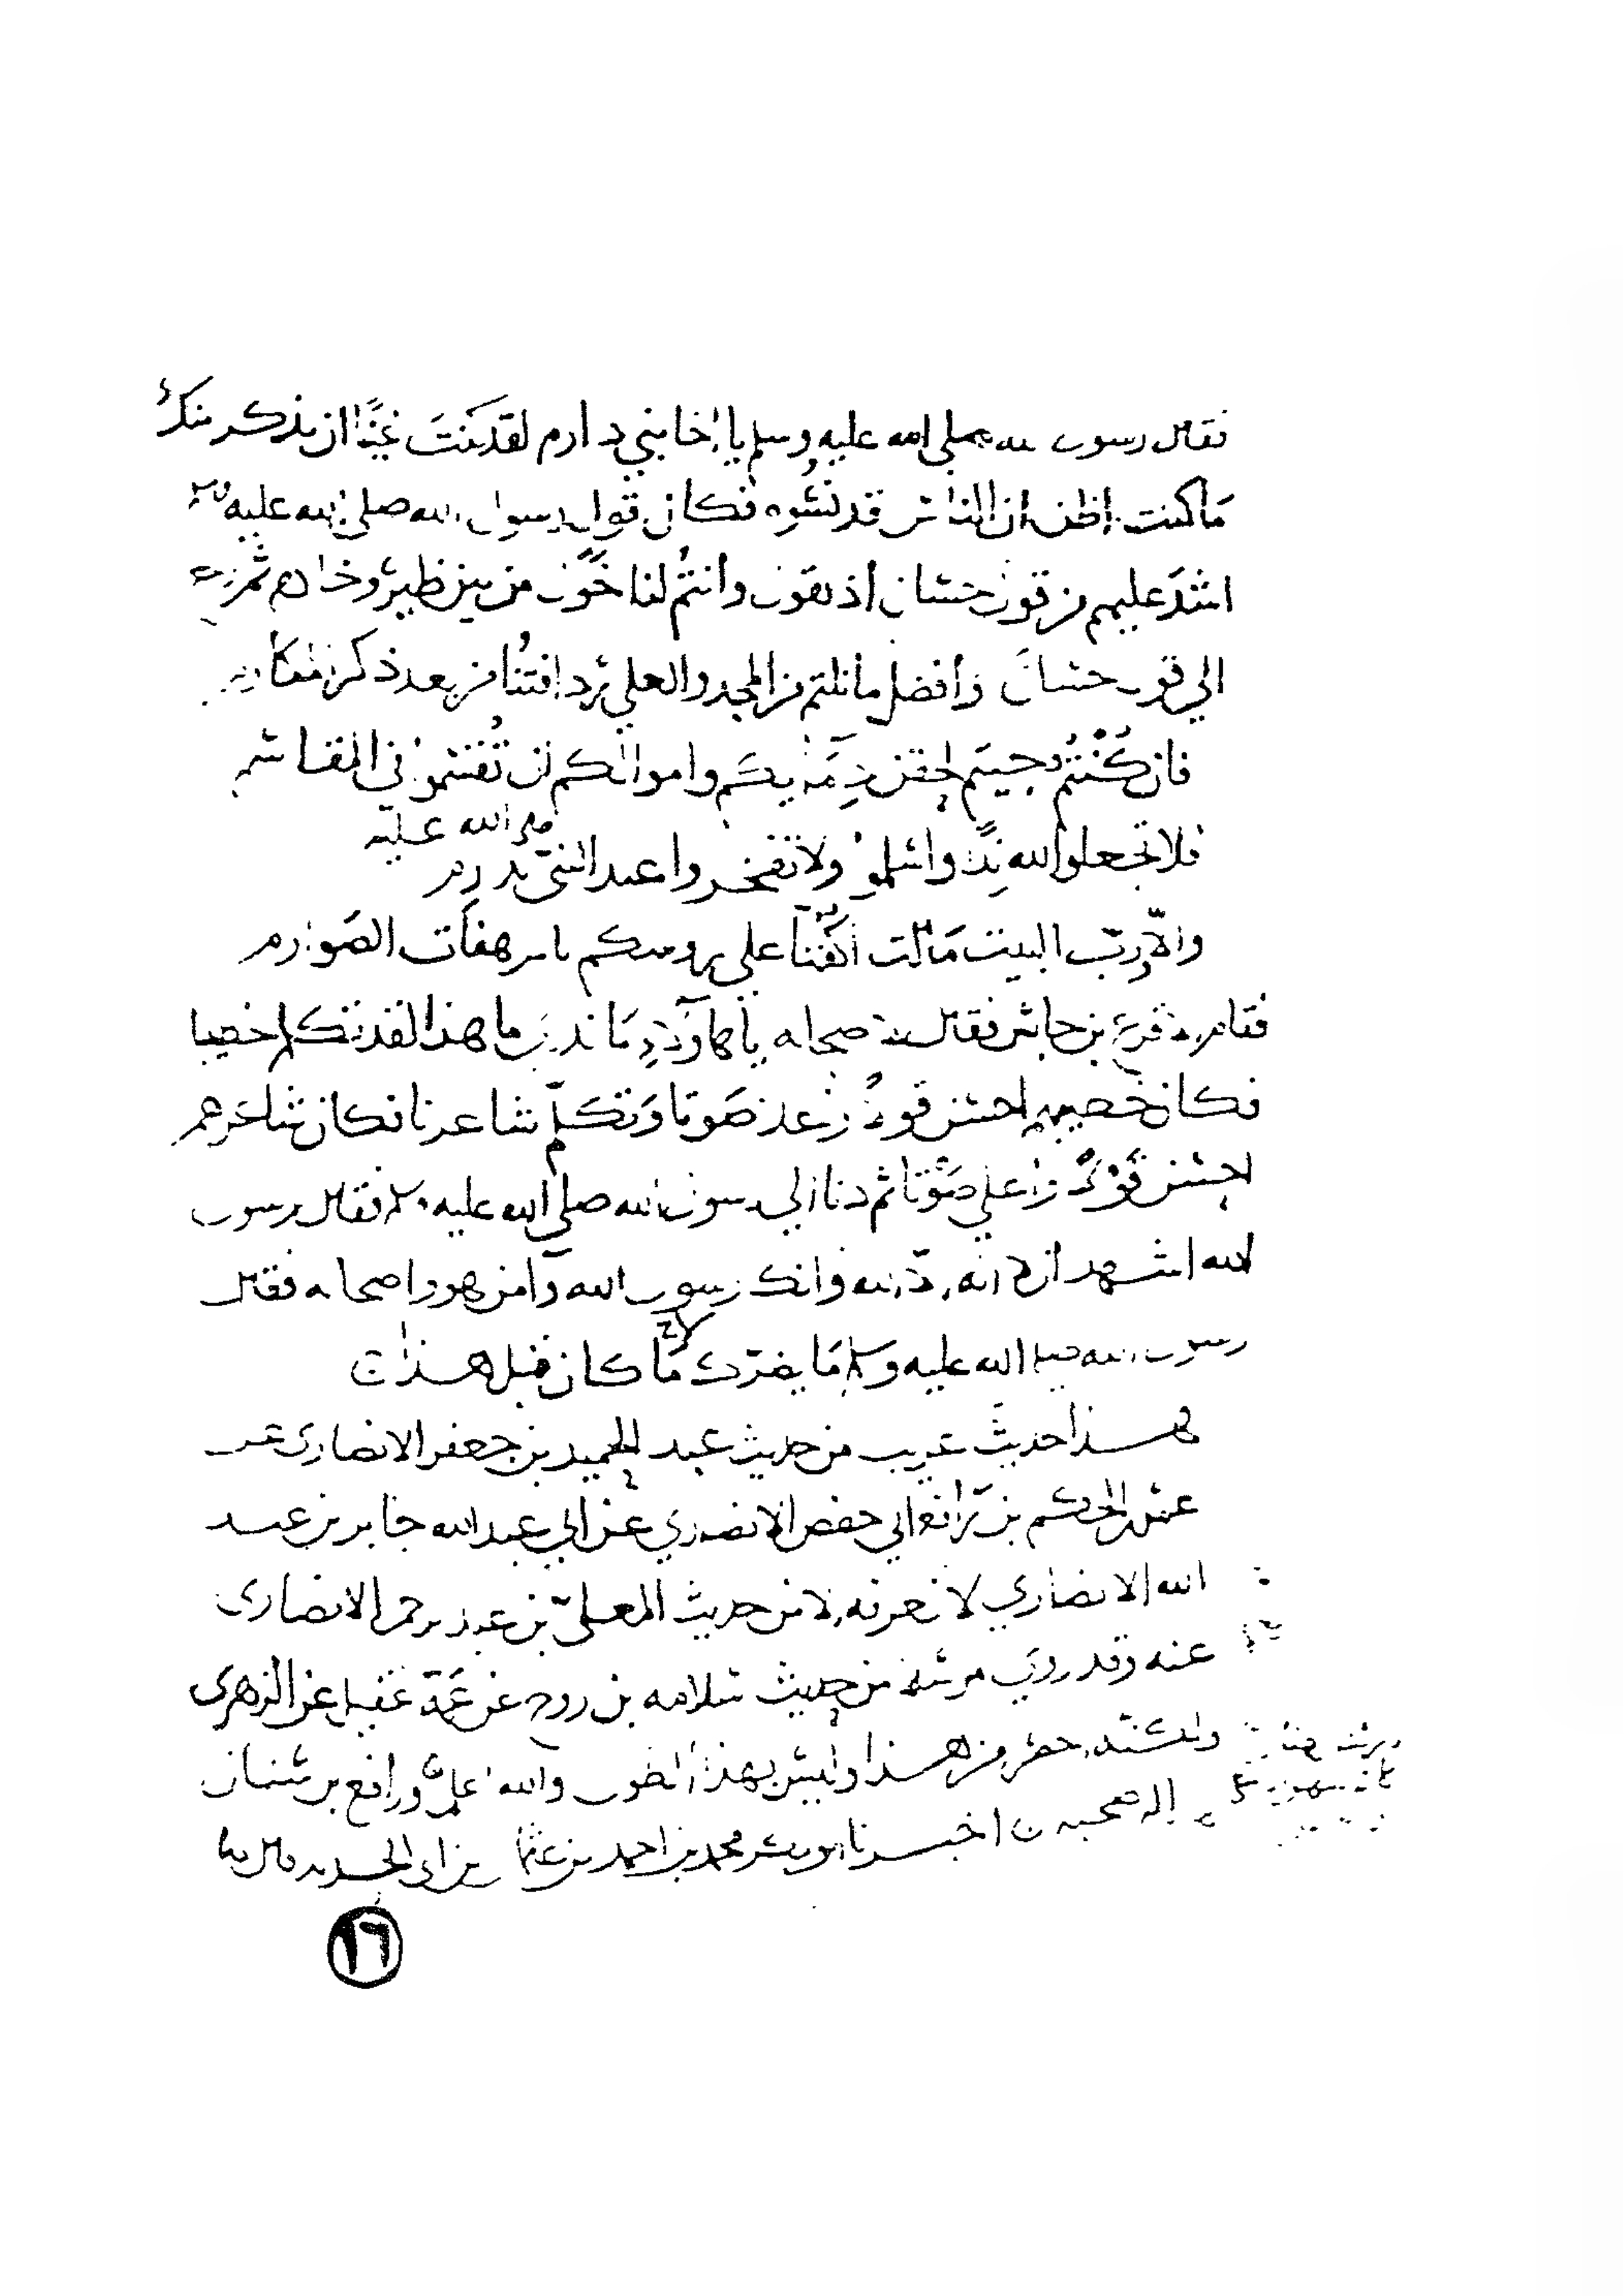 فقال رسول الله صلى الله عليه وسلم يا اخا بني دارم لقد كنت غنيًّا ان يذكر منك
ما كنت اظن ان الناس قد نسُوه فكان قول رسول الله صلى الله عليه
اشدَّ عليهم من قول حسان اذ يقول وانتُم لنا خَوَل من بين ظير وخادم ثم رجع
الي قول حسان وافضل ما نلتم من المجد والعلي رد افتنُا من بعد ذكر المكارم
فان كُنْتُم جيتم لحقن دِمَايكم واموالكم ان تُقسموا في المقاسم
فلا تجعلوا لله نِدًّا واسلموا ولا تفخروا عند النبي بدارم
صلى الله عليه
والاّ وربّ البيت مَالت اكفّنا علي روسكم بالمرهفات الصَوارم
فقام الاقرع بن حابس فقال لاصحابه يا هاولاءِ مَا ندري ما هذا لقد تكلم خطيبنا
فكان خطيبهم احسن قولًا واعلا صَوتا وَتكلّم شاعرنا فكان شاعرهم
احسن قَوْلًا واعلي صَوْتا ثم دنا الي رسول الله صلى الله عليه وسلم فقال رسول
الله اشهد ان لا اله الاّ الله وانك رسول الله وآمن هو واصحابه فقال
رسول الله صلى الله عليه وسلم مَا يضرّك مَا كان قبل هذا
هذا حديثَ غريب من حديث عبد الحميد بن جعفر الانصاري عن
عمر بن الحكم بن رَافع ابي حفص الانصاري عن ابي عبد الله جابر بن عبد
الله الانصاري لا نعرفه الا من حديث المعلّي بن عبد الرحمن الانصاري
عنه وقد روي مرسلا من حديث سلامه بن روح عن عَمّه عقيل عن الزهري
والسند اخصر من هذا وليس بهذا الطول والله اعلم ورافع بن سنان
له صحبه اخبرنا ابو بكر محمد بن احمد بن عثمان بن ابي الحديد قال
١٦